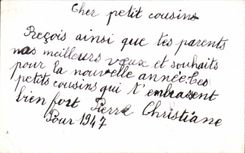 Cher petit cousins
Reçois ainsi que tes parents
nos meilleurs vœux et souhaits
pour la nouvelle année. Ces
petits cousins qui t'embrassent
bien fort Pierre Christiane
Pour 1947